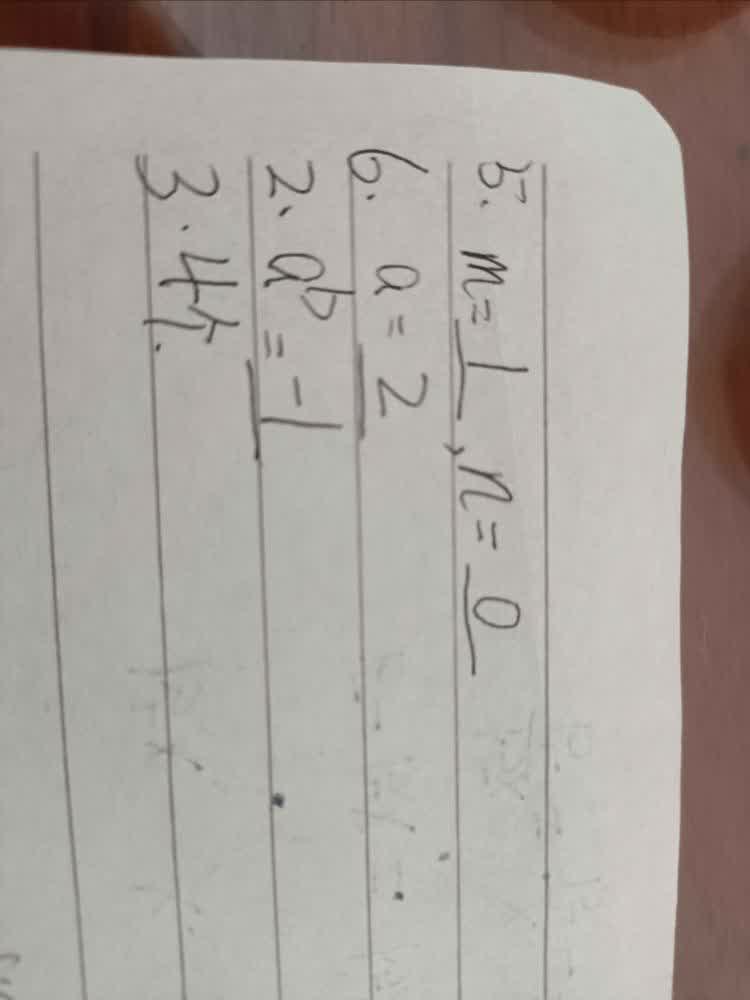 5. m=1, n=0
6. a=2
2. a^b=-1
3. 4个.